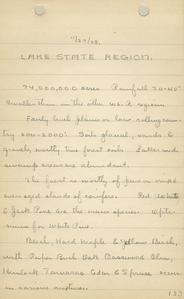 11/24/08.
LAKE STATE REGION.
74,000,000 acres. Rainfall 20-40"
Smaller than in the other U.S. region.
Fairly level plains or low rolling coun-
try 600-2000'. Soils glacial, sands &
gravels mostly true forest soils. Lakes and
swamp areas are abundant.
The forest is mostly of pure or mixed
even aged stands of conifers. Red White
& Jack Pine are the main species. Opti-
mum for White Pine.
Beech, Hard Maple & Yellow Birch,
with Paper Birch Oak Basswood Elm,
Hemlock Tamarac Cedar & Spruce occur
in various mixtures.
133